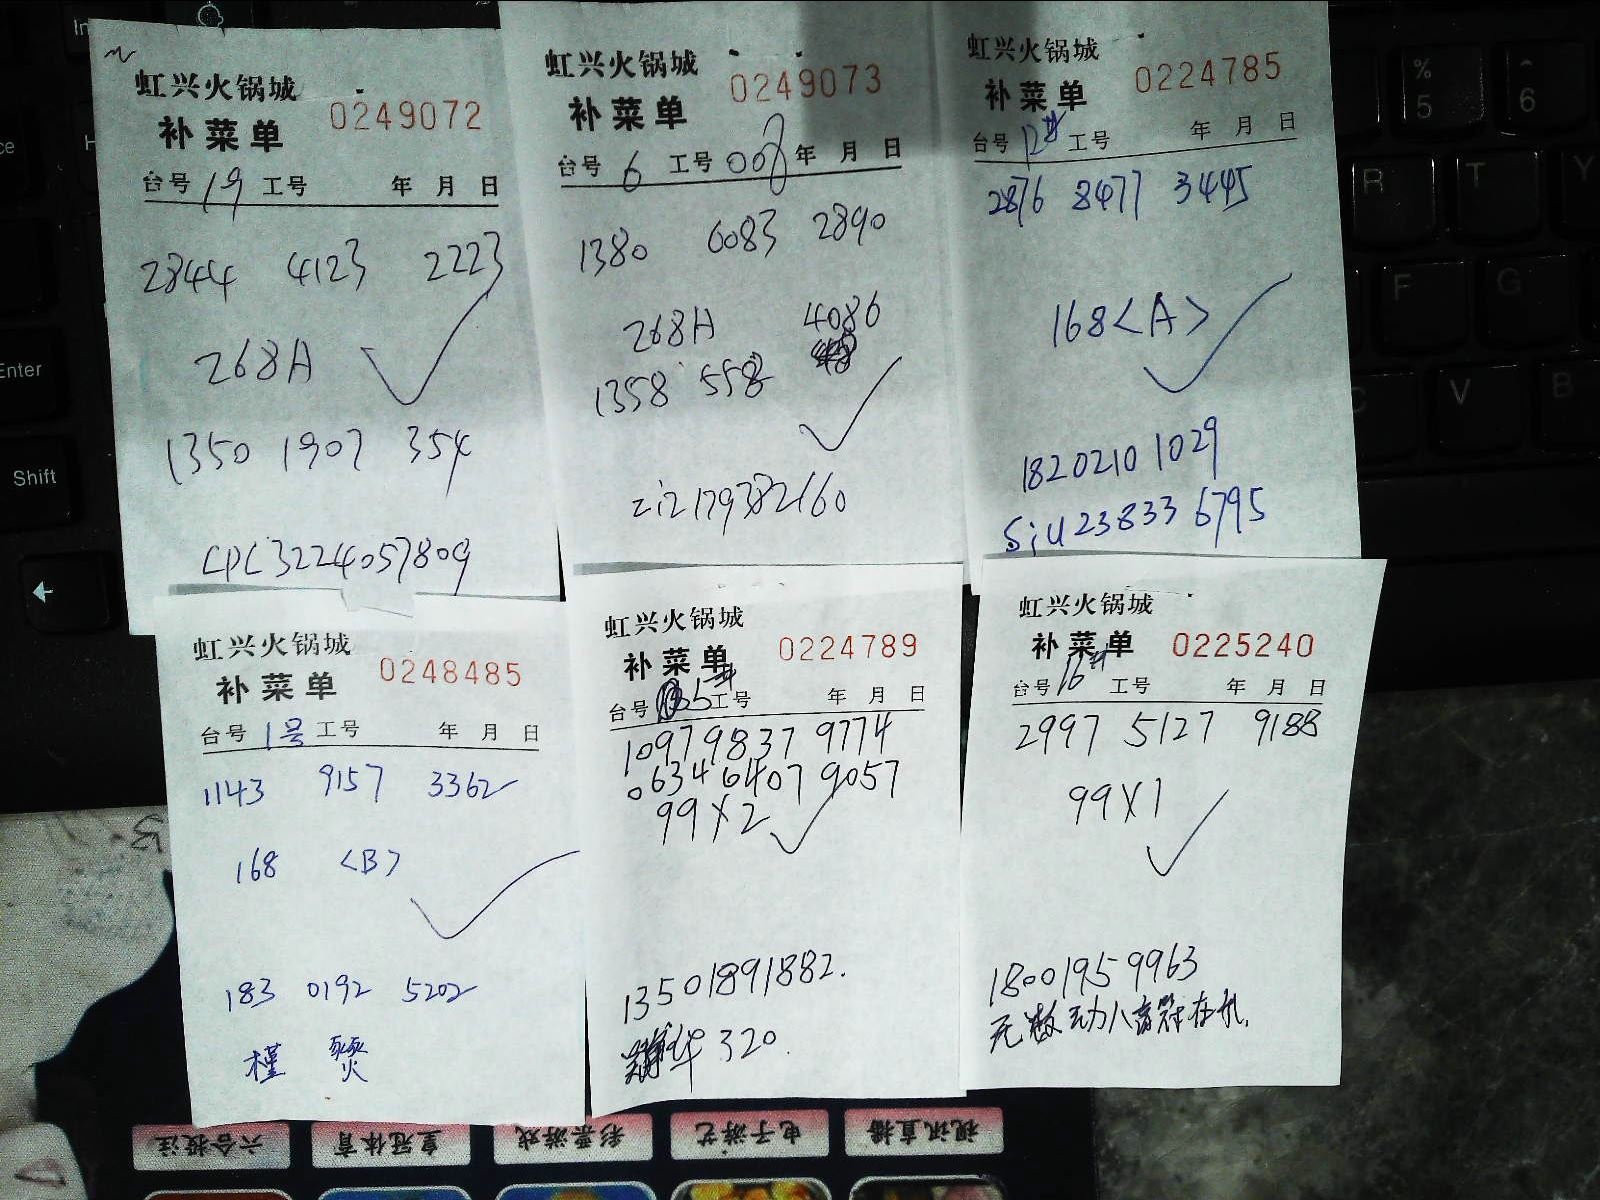 虹兴火锅城
补菜单 0249072
台号 19 工号 年 月 日
2844 4123 2223
268A
1350 1907 354
CPC3224057809
虹兴火锅城
补菜单 0249073
台号 6 工号 008 年 月 日
1380 6083 2890
268A 4086
1358 558
ziz179382160
虹兴火锅城
补菜单 0224785
台号 12# 工号 年 月 日
2876 8477 3445
168<A>
18202101029
Siu238336795
虹兴火锅城
补菜单 0248485
台号 1号 工号 年 月 日
1143 9157 3362
168 <B>
183 0192 5202
槿 燹
虹兴火锅城
补菜单 0224789
台号 5# 工号 年 月 日
1097 9837 9774
0634 6407 9057
99X2
13501891882.
320
虹兴火锅城
补菜单 0225240
台号 16# 工号 年 月 日
2997 5127 9188
99X1
18001959963
无数 动人 在机
六合投注 皇冠体育 彩票游戏 电子游艺 视讯直播
Enter
Shift
% 5
^ 6
R T Y
F G
C V B